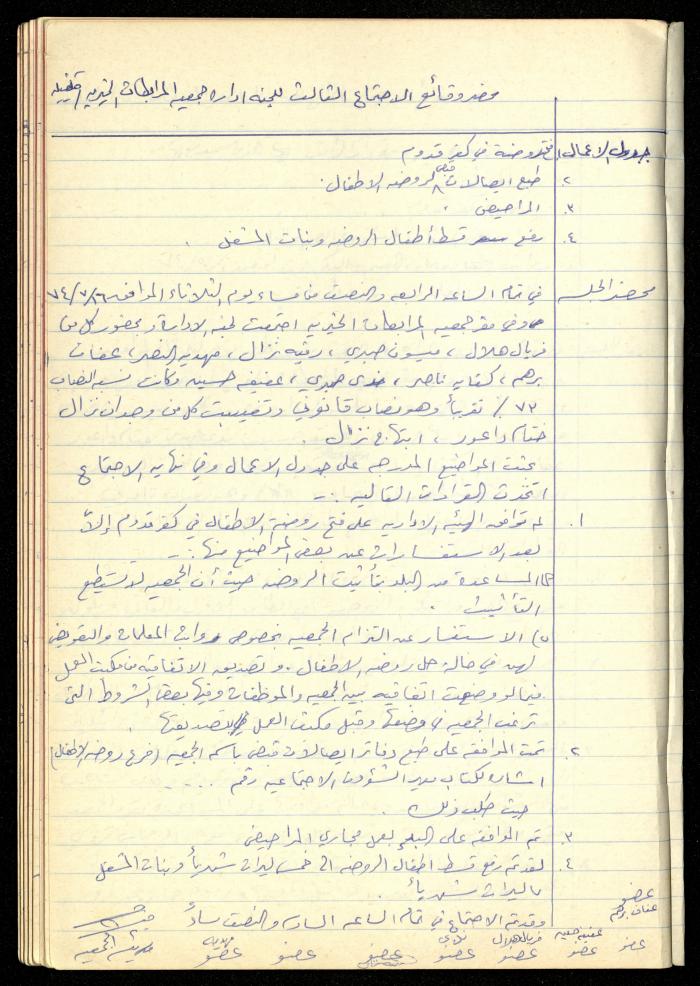 محضر وقائع الاجتماع الثالث للجنة ادارة جمعيه المرابطات الخيريه / قلقيليه
جدول الاعمال ١. فتح روضة في كفر قدوم
٢. طبع ايصالات قبض لروضه الاطفال.
٣. المراحيض.
٤. رفع قسط أطفال الروضه وبنات المشغل.
محضر الجلسه في تمام الساعه الرابعه والنصف من مساء يوم الثلاثاء الموافق ١٦/٧/٧٤
وفي مقر جمعيه المرابطات الخيريه اجتمعت لجنه الادارة وبحضور كل من
فريال هلال، ميسون صبري، رقيه نزال، مهديه النصر، عفاف
برهم، كفايه ناصر، صبري، عفيفه حسين وكانت نسبه النصاب
٧٣ ٪ تقريباً وهو نصاب قانوني وتغيبت كل من وجدان نزال
ختام داعور، ابتهاج نزال.
بحثت المواضيع المدرجه على جدول الاعمال وفي نهايه الاجتماع
اتخذت القرارات التاليه :-
١. لم توافق الهيئه الاداريه على فتح روضة الاطفال في كفر قدوم إلاّ
بعد الاستفسارات عن بعض المواضيع منها :-
١) المساعدة من البلد بتأثيث الروضه حيث أن الجمعيه لا تستطيع
التأثيث.
٢) الاستفسار عن التزام الجمعيه بخصوص رواتب المعلمات والتعويض
لهن في حالة حل روضه الاطفال. وتصديق الاتفاقيه من مكتب العمل
فيما لو وضعت اتفاقيه بين الجمعيه والموظفات وفيها بعض الشروط التي
ترغب الجمعيه في وضعها وقبل مكتب العمل بتصديقها.
٢. تمت الموافقه على طبع دفاتر ايصالات قبض باسم الجمعيه (فرع روضه الاطفال)
اشارة لكتاب مدير الشؤون الاجتماعيه رقم .....
حيث طلب ذلك.
٣. تم الموافقه على البدء بعمل مجاري المراحيض
٤. لقد تم رفع قسط اطفال الروضه الى خمس ليرات شهرياً وبنات المشغل
ليرات شهرياً.
وقد تم الاجتماع في تمام الساعه السادسه والنصف مساءً
عضو
عفاف برهم
عضو
عفيفه حسين
عضو
فريال هلال
عضو
عضو
عضو
عضو
مهديه
عضو
رئيسة الجمعيه